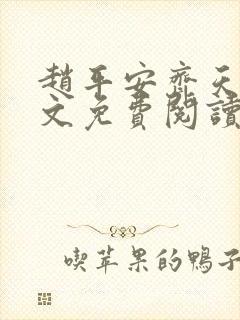 趙平安齊天
文免費閱讀
喫苹果的鴨子